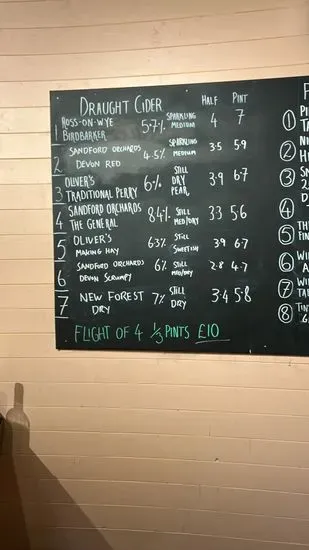 DRAUGHT CIDER HALF PINT
1 ROSS-ON-WYE BIRDBARKER 5.7% SPARKLING MEDIUM 4 7
2 SANDFORD ORCHARDS DEVON RED 4.5% SPARKLING MEDIUM 3.5 5.9
3 OLIVER'S TRADITIONAL PERRY 6% STILL DRY PEAR 3.9 6.7
4 SANDFORD ORCHARDS THE GENERAL 8.4% STILL MED/DRY 3.3 5.6
5 OLIVER'S MAKING HAY 6.3% STILL SWEETISH 3.9 6.7
6 SANDFORD ORCHARDS DEVON SCRUMPY 6% STILL MED/DRY 2.8 4.7
7 NEW FOREST DRY 7% STILL DRY 3.4 5.8
FLIGHT OF 4 1/3 PINTS £10
1
2
3
4
5
6
7
8